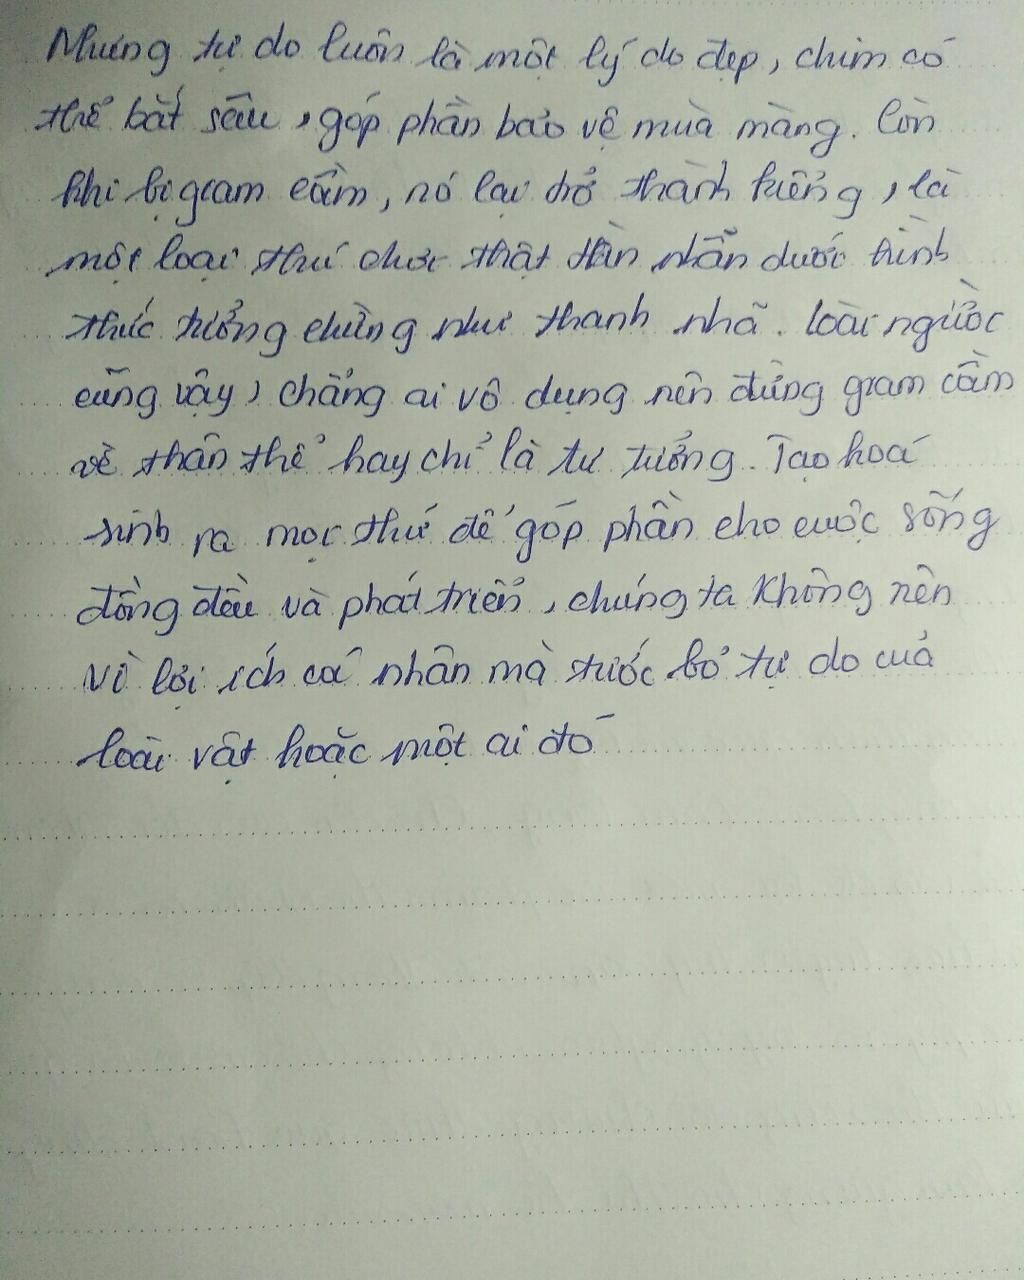 Nhưng tự do luôn là một lý do đẹp, chim có
thể bắt sâu, góp phần bảo vệ mùa màng. Còn
khi bị giam cầm, nó lại trở thành kiểng, là
một loại thú chơi thật tàn nhẫn dưới hình
thức tưởng chừng như thanh nhã. Loài người
cũng vậy, chẳng ai vô dụng nên đừng giam cầm
về thân thể hay chỉ là tư tưởng. Tạo hoá
sinh ra mọi thứ để góp phần cho cuộc sống
đồng đều và phát triển, chúng ta không nên
vì lợi ích cá nhân mà tước bỏ tự do của
loài vật hoặc một ai đó